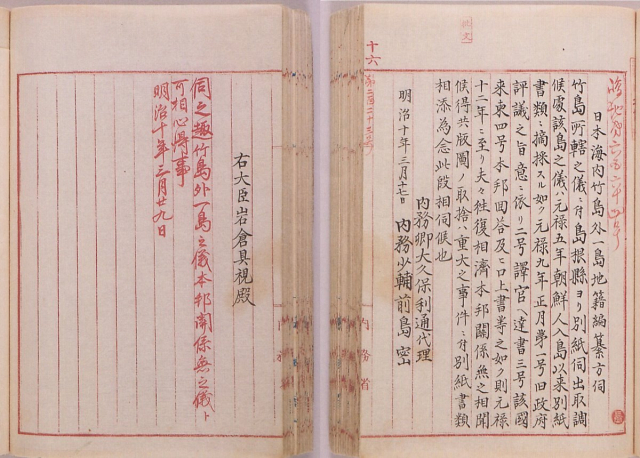 日本海内竹島外一島地籍編纂方伺
竹島所轄之儀ニ付島根縣ヨリ別紙伺出取調
候處該島之儀ハ元禄五年朝鮮人入島以来別紙
書類ニ摘採スル如ク元禄九年正月第一号旧政府
評議之旨意ニ依リ二号譯官ヘ達書三号該國
来柬四号本邦回答及ヒ口上書等之如ク則元禄
十二年ニ至リ夫々往復相濟本邦關係無之相聞
候得共版圖ノ取捨ハ重大之事件ニ付別紙書類
相添為念此段相伺候也
明治十年三月十七日
内務卿大久保利通代理
内務少輔前島密
十六
内務省
右大臣岩倉具視殿
伺之趣竹島外一島之儀本邦関係無之儀ト
可相心得事
明治十年三月廿九日